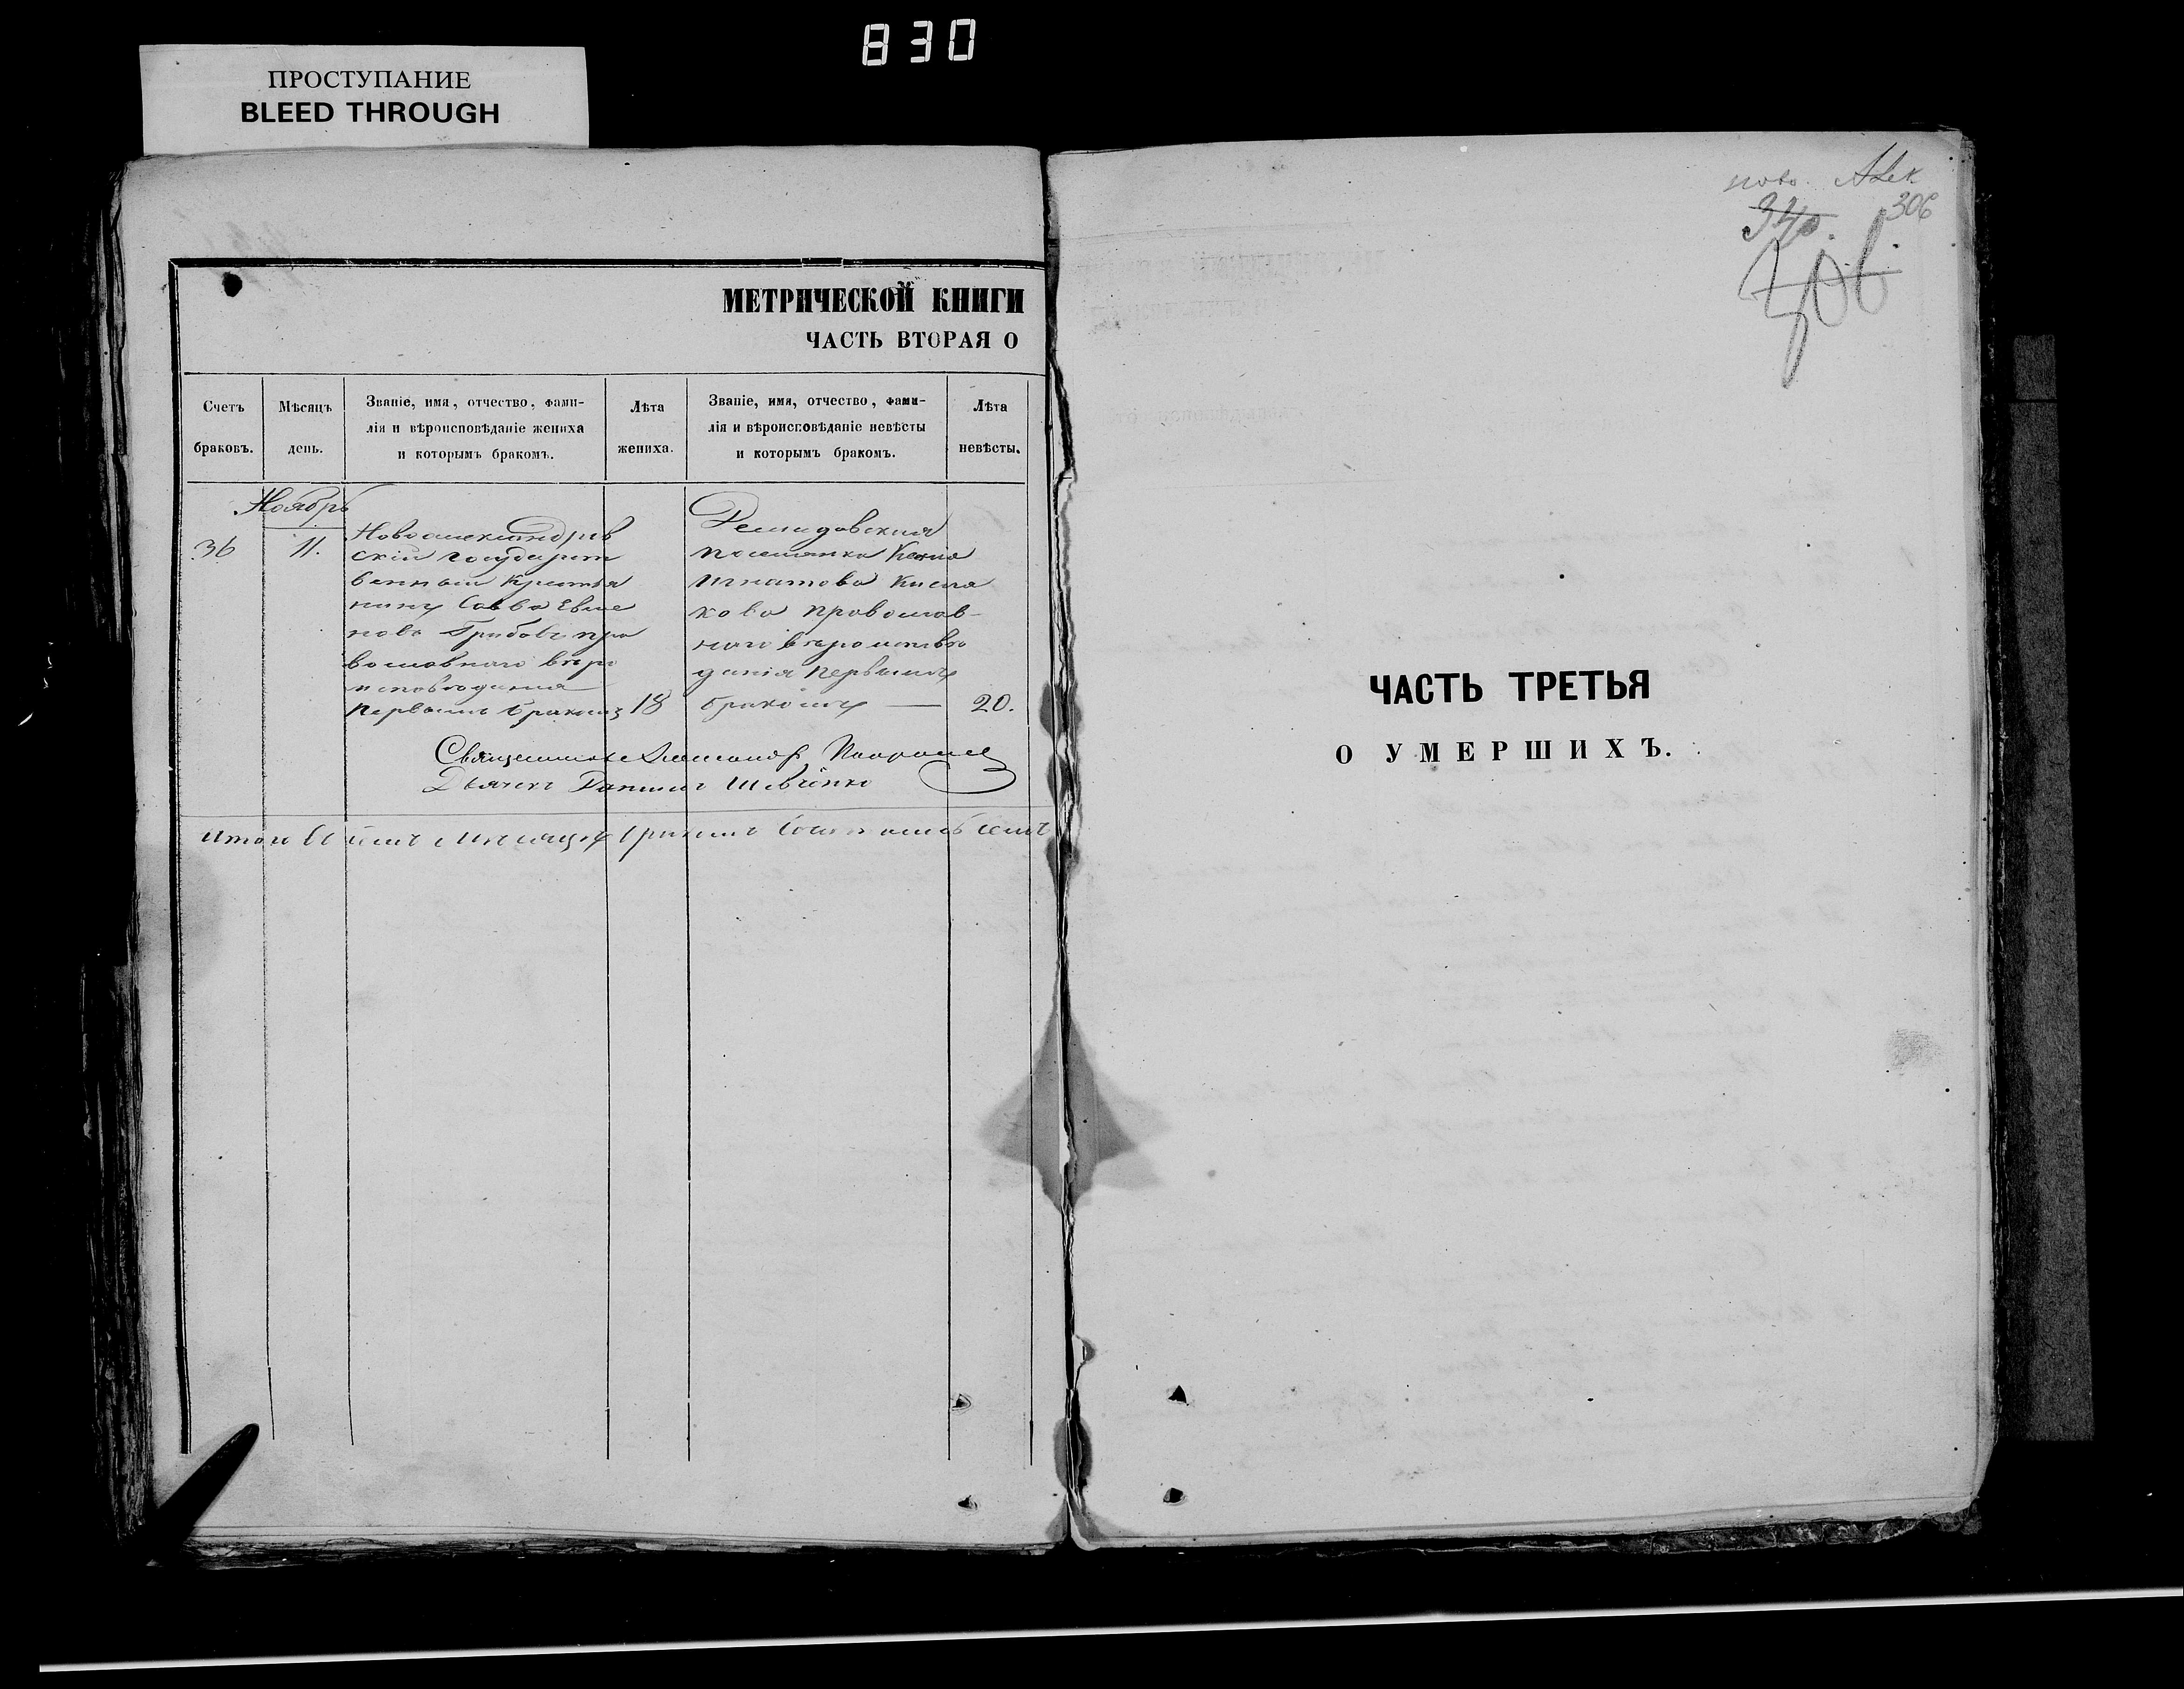 830
ПРОСТУПАНИЕ
BLEED THROUGH
МЕТРИЧЕСКОЙ КНИГИ
ЧАСТЬ ВТОРАЯ О
Счетъ
браковъ.
Мѣсяцъ
день.
Званіе, имя, отчество, фами-
лія и вѣроисповѣданіе жениха
и которымъ бракомъ.
Лѣта
жениха.
Званіе, имя, отчество, фами-
лія и вѣроисповѣданіе невѣсты
и которымъ бракомъ.
Лѣта
невѣсты.
Ноябрь
36
11.
Новоалександров
скій государст
венный крестья
нинъ Савва
Грибовъ пра
вославнаго вѣро
исповѣданія
первымъ бракомъ
18
Демидовская
поселянка
Игнатова Кисля
кова православ-
наго вѣроисповѣ
данія первымъ
бракомъ —
20.
Священникъ
Дьячекъ Даниилъ Шевченко
Итого въ семъ мѣсяцѣ
306
340.
306
ЧАСТЬ ТРЕТЬЯ
О УМЕРШИХЪ.